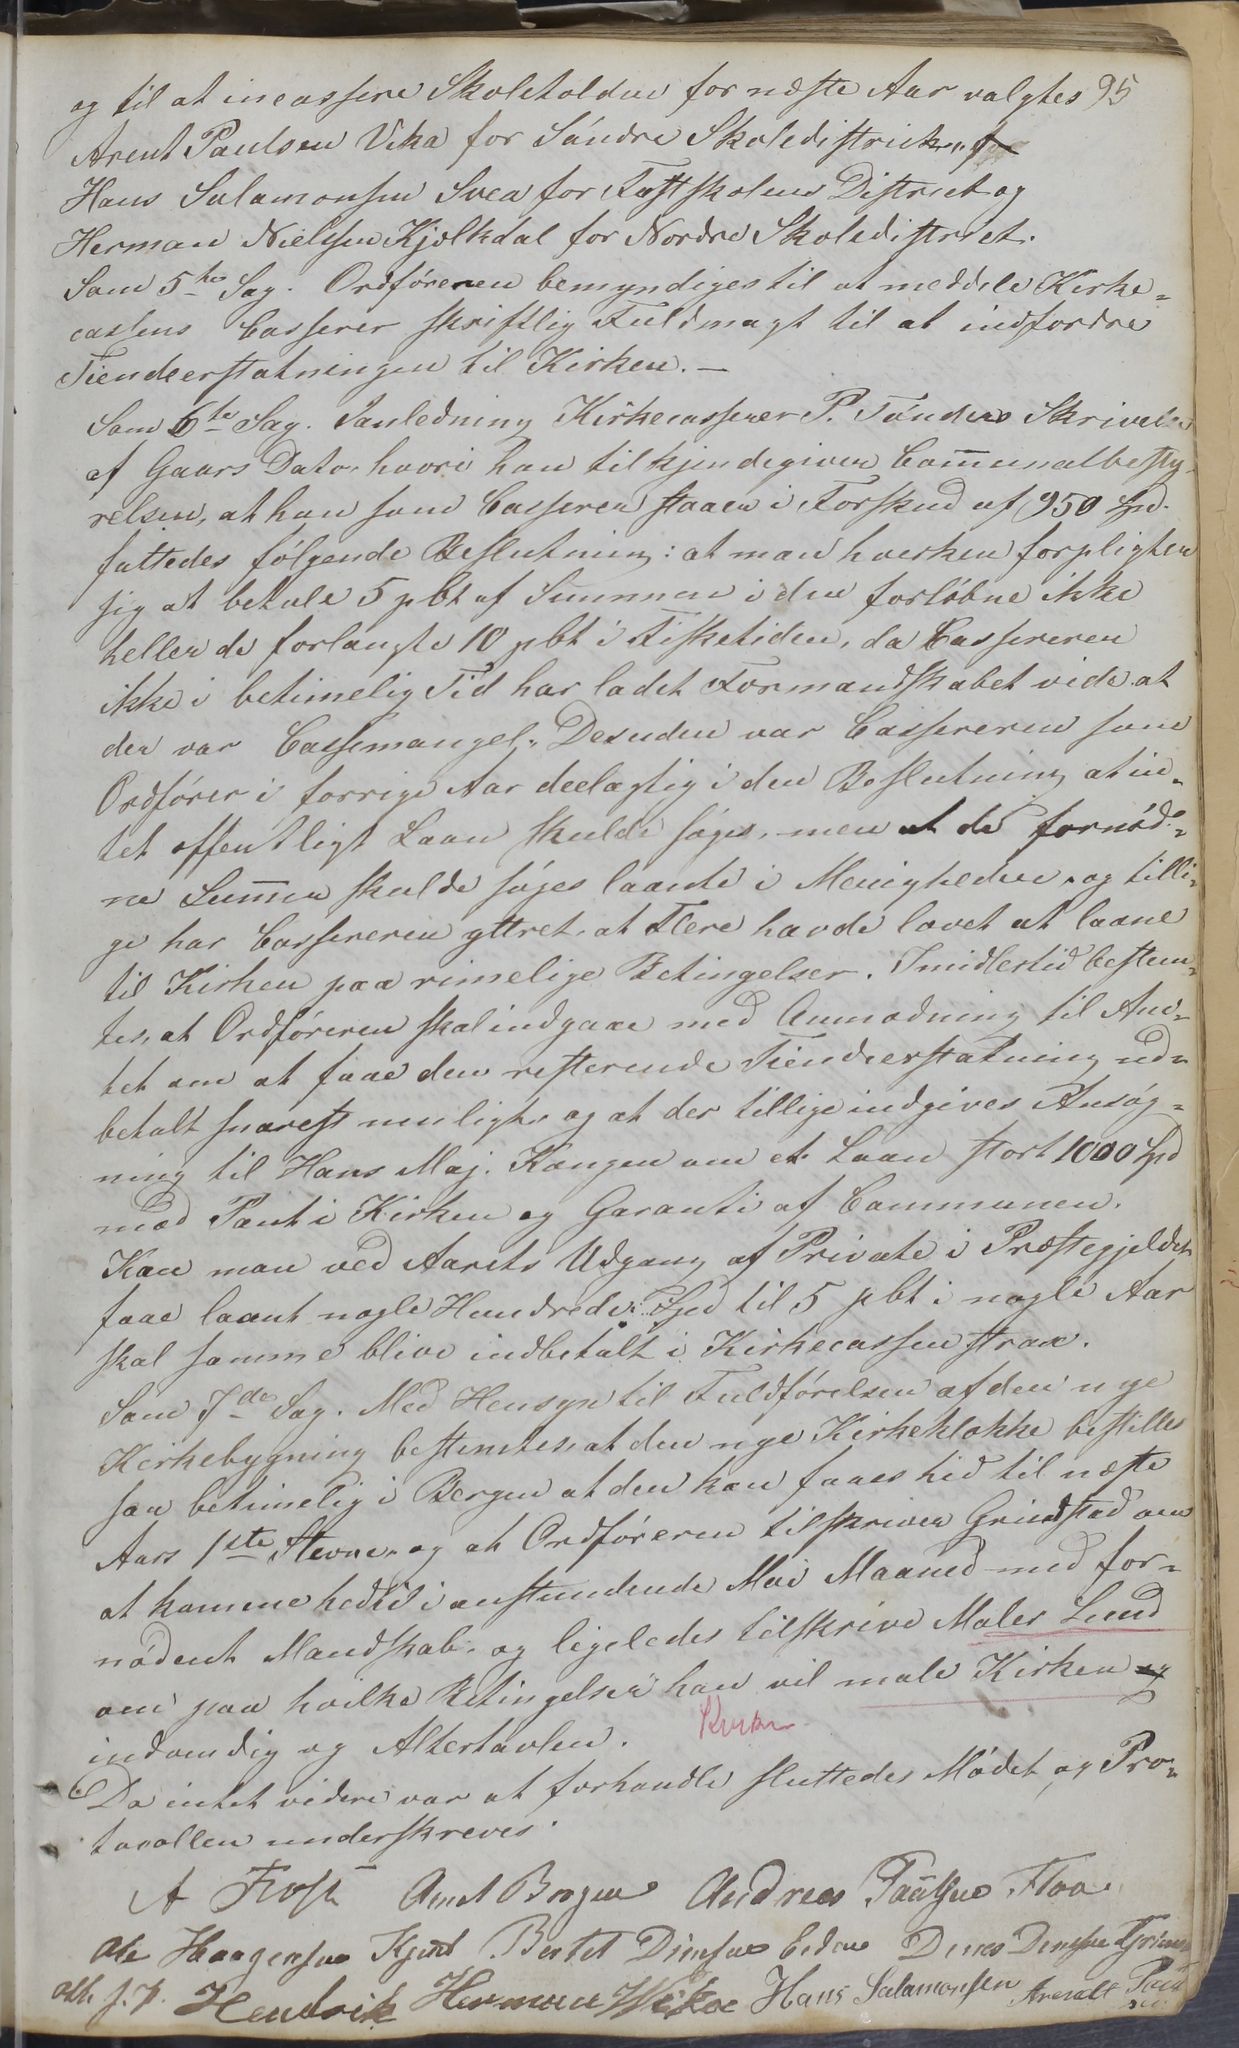 og til at incassere Skoletolden for næste Aar valgtes 95
Arent Paulsen Vika for Söndre Skoledistrict,
Hans Salamonsen Svea for Fastskolens District og
Herman Nielsen Kjölkdal for Nordre Skoledistrict.
Som 5te Sag. Ordföreren bemyndiges til at meddele Kirke-
cassens Casserer skriftlig Fuldmagt til at indfordre
Tiendeerstatningen til Kirken. —
Som 6te Sag. Ianledning Kirkecasserer P. Tønders Skrivelse
af Gaars Dato, hvori han tilkjendegiver Communalbesty-
relsen, at han som Casserer staaer i Forskud af 950 Spd.
fattedes fölgende Beslutning: at man hverken forpligter
sig at betale 5 pCt af Summen i den forløbne ikke
heller de forlangte 10 pCt i Fisketiden, da Cassereren
ikke i betimelig Tid har ladet Formandskabet vide at
der var Cassemangel. Desuden var Cassereren som
Ordförer i forrige Aar deelagtig i den Beslutning at in-
tet offentligt Laan skulde söges, men at de fornöd-
ne Summer skulde söges laante i Menigheden, og tilli-
ge har Cassereren yttret, at Flere havde lovet at laane
til Kirken paa rimelige Betingelser. Imidlertid bestem-
tes, at Ordföreren skal indgaae med Anmodning til Am-
tet om at faae den resterende Tiendeerstatning ud-
betalt snarest muligt, og at der tillige indgives Ansög-
ning til Hans Maj. Kongen om et Laan stort 1000 Spd
med Pant i Kirken og Garanti af Communen.
Kan man ved Aarets Udgang af Private i Præstegjeldet
faae laant nogle Hundrede Spd til 5 pCt i nogle Aar
skal samme blive indbetalt i Kirkecassen strax.
Som 7de Sag. Med Hensyn til Fuldförelsen af den nye
Kirkebygning bestemtes, at den nye Kirkeklokke bestilles
saa betimelig i Bergen at den kan faaes hid til næste
Aars 1ste Stevne, og at Ordföreren tilskriver Grindstad om
at komme hedid i anstundende Mai Maaned med for-
nödent Mandskab, og ligeledes tilskrive Maler Lund
om paa hvilke Betingelser han vil male Kirken og
indvendig og Altertavlen. Kirken
Da intet videre var at forhandle sluttedes Mödet og Pro-
tocollen underskreves.
A Frost Arnt Brogen Andreas Paulsen Floa
Ole Haagensen Bertel Dinesen Eidem Dines Dinesen
Hendrik Herman Wika Hans Salamonsen